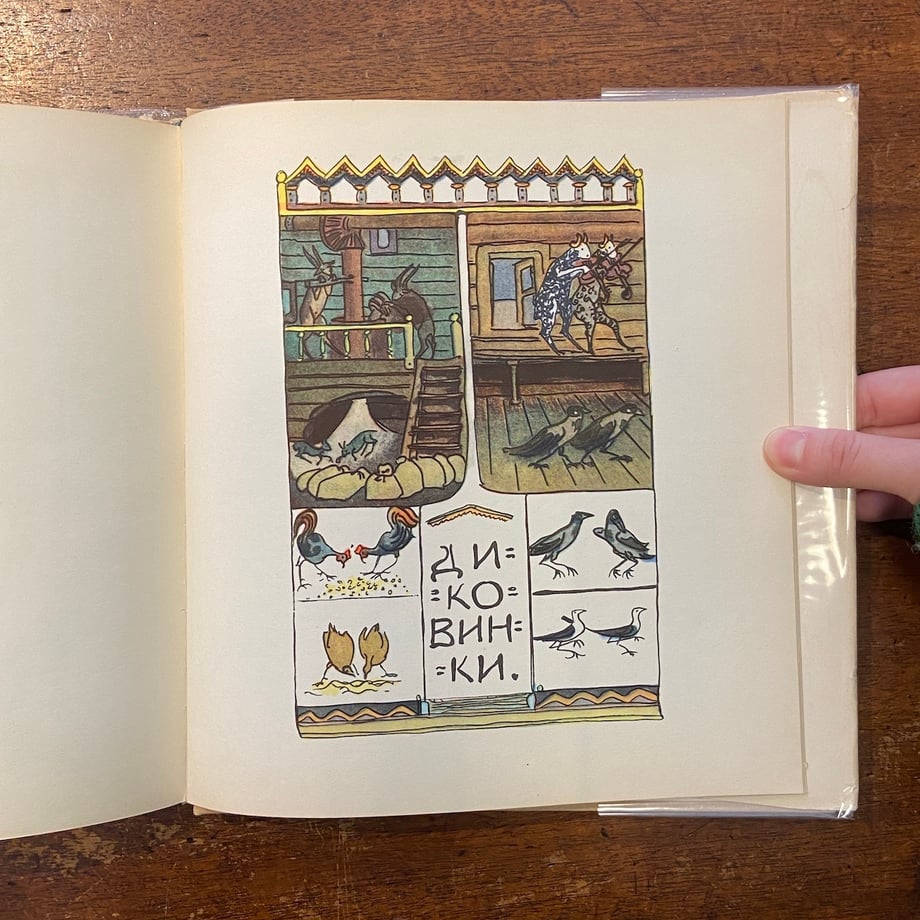 ДИ=
=КО=
ВИН=
=КИ.